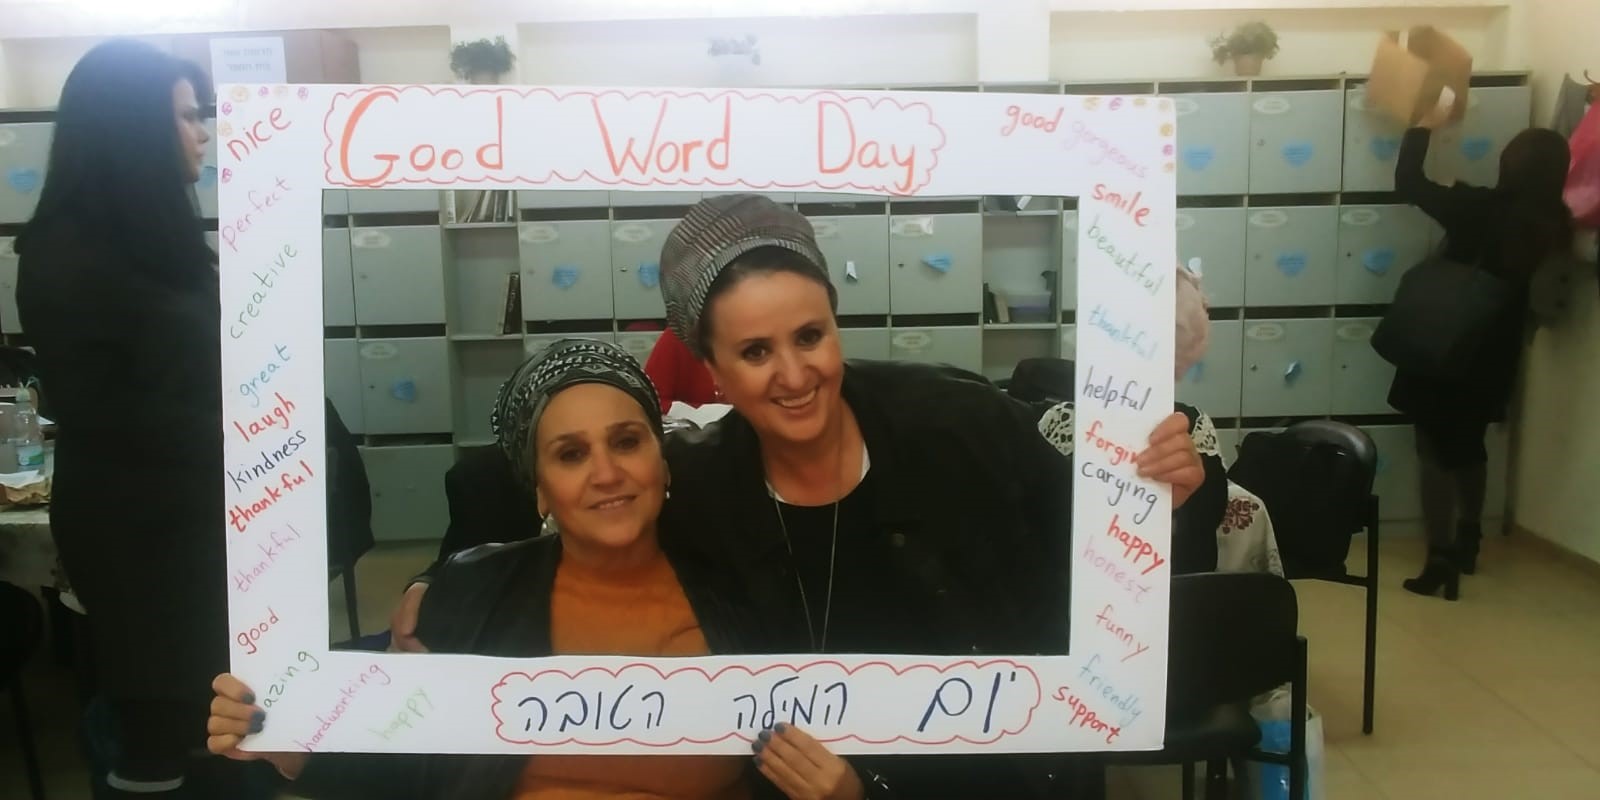 Good Word Day
nice
perfect
creative
great
laugh
kindness
thankful
thankful
good
azing
hardworking
happy
good
gorgeous
smile
beautiful
thankful
helpful
forgiv
carying
happy
honest
funny
friendly
support
יום המילה הטובה